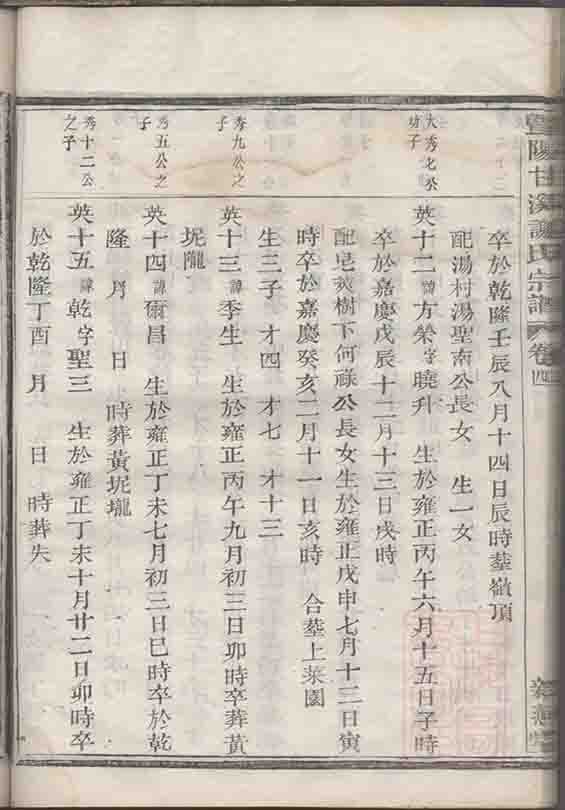 暨陽甘溪謝氏宗譜 卷四
卒於乾隆壬辰八月十四日辰時塟嶺頂
配湯村湯聖南公長女 生一女
大秀七公幼子
英十二諱方榮字曉升 生於雍正丙午六月十五日子時
卒於嘉慶戊辰十二月十三日戌時
配皂莢樹下何祿公長女生於雍正戊申七月十三日寅
時卒於嘉慶癸亥二月十一日亥時 合塟上菜園
生三子 才四 才七 才十三
秀九公之子
英十三諱季生 生於雍正丙午九月初三日卯時卒葬黃
坭隴
秀五公之子
英十四諱爾昌 生於雍正丁未七月初三日巳時卒於乾
隆 月 日 時葬黃坭壠
秀十二公之子
英十五諱乾字聖三 生於雍正丁未十月廿二日卯時卒
於乾隆丁酉 月 日 時葬失